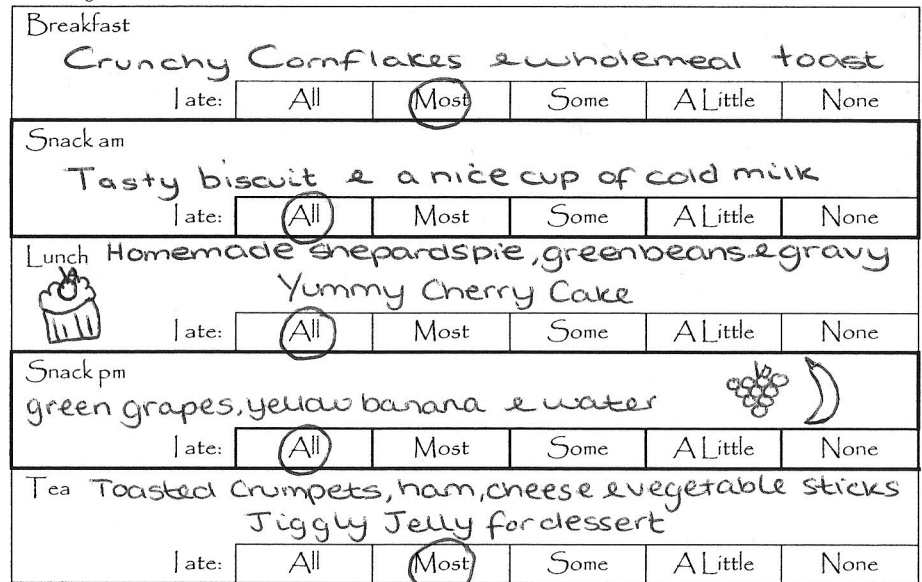 Breakfast
Crunchy Cornflakes & wholemeal toast
I ate: All Most Some A Little None
Snack am
Tasty biscuit & a nice cup of cold milk
I ate: All Most Some A Little None
Lunch Homemade shepardspie, greenbeans & gravy
Yummy Cherry Cake
I ate: All Most Some A Little None
Snack pm
green grapes, yellow banana & water
I ate: All Most Some A Little None
Tea Toasted Crumpets, ham, cheese & vegetable sticks
Jiggly Jelly for dessert
I ate: All Most Some A Little None